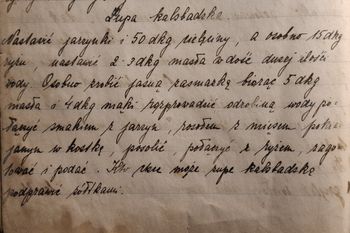 Zupa kalsbadska
Nastawić jarzynki i 50 dkg cielęciny, a osobno 15 dkg
ryżu, nastawić 2-3 dkg masła w dość dużej ilości
wody. Osobno zrobić jasną zasmażkę biorąc 5 dkg
masła i 4 dkg mąki rozprowadzić odrobiną wody po
łączyć smakiem z jarzyn, rosołem z mięsem pokra
janym w kostkę, posolić połączyć z ryżem, zago
tować i podać. Kto chce może zupę kalsbadską
podprawić żółtkami.